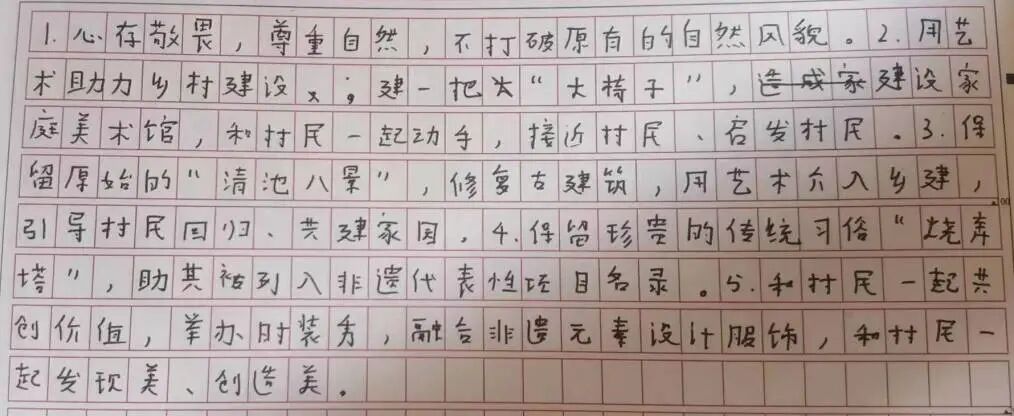 1.心存敬畏，尊重自然，不打破原有的自然风貌。2.用艺
术助力乡村建设，；建一把大“大椅子”，造成家建设家
庭美术馆，和村民一起动手，接近村民、启发村民。3.保
留原始的“清池八景”，修复古建筑，用艺术介入乡建，
引导村民回归、共建家园。4.保留珍贵的传统习俗“烧奔
塔”，助其被列入非遗代表性项目名录。5.和村民一起共
创价值，举办时装秀，融合非遗元素设计服饰，和村民一
起发现美、创造美。